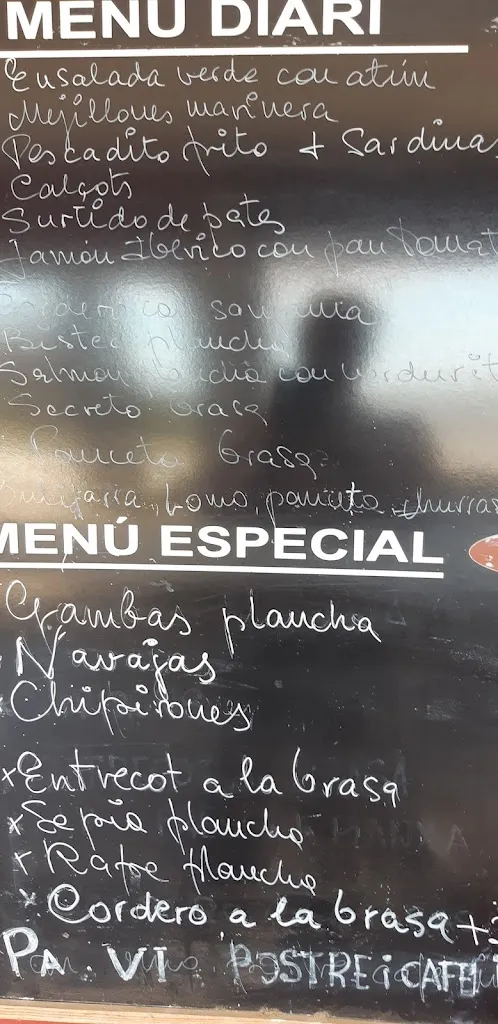 MENÚ DIARI
Ensalada verde con atún
Mejillones marinera
Pescadito frito + Sardina
Calçots
Surtido de pates
Jamón Iberico con pan tomat
con
Bistec plancha
Salmon plancha con
Secreto brasa
Panceta brasa
lomo, panceta, churras
MENÚ ESPECIAL
Gambas plancha
Navajas
Chipirones
x Entrecot a la brasa
x Sepia plancha
x Rape plancha
x Cordero a la brasa +
PA VI POSTRE i CAFE